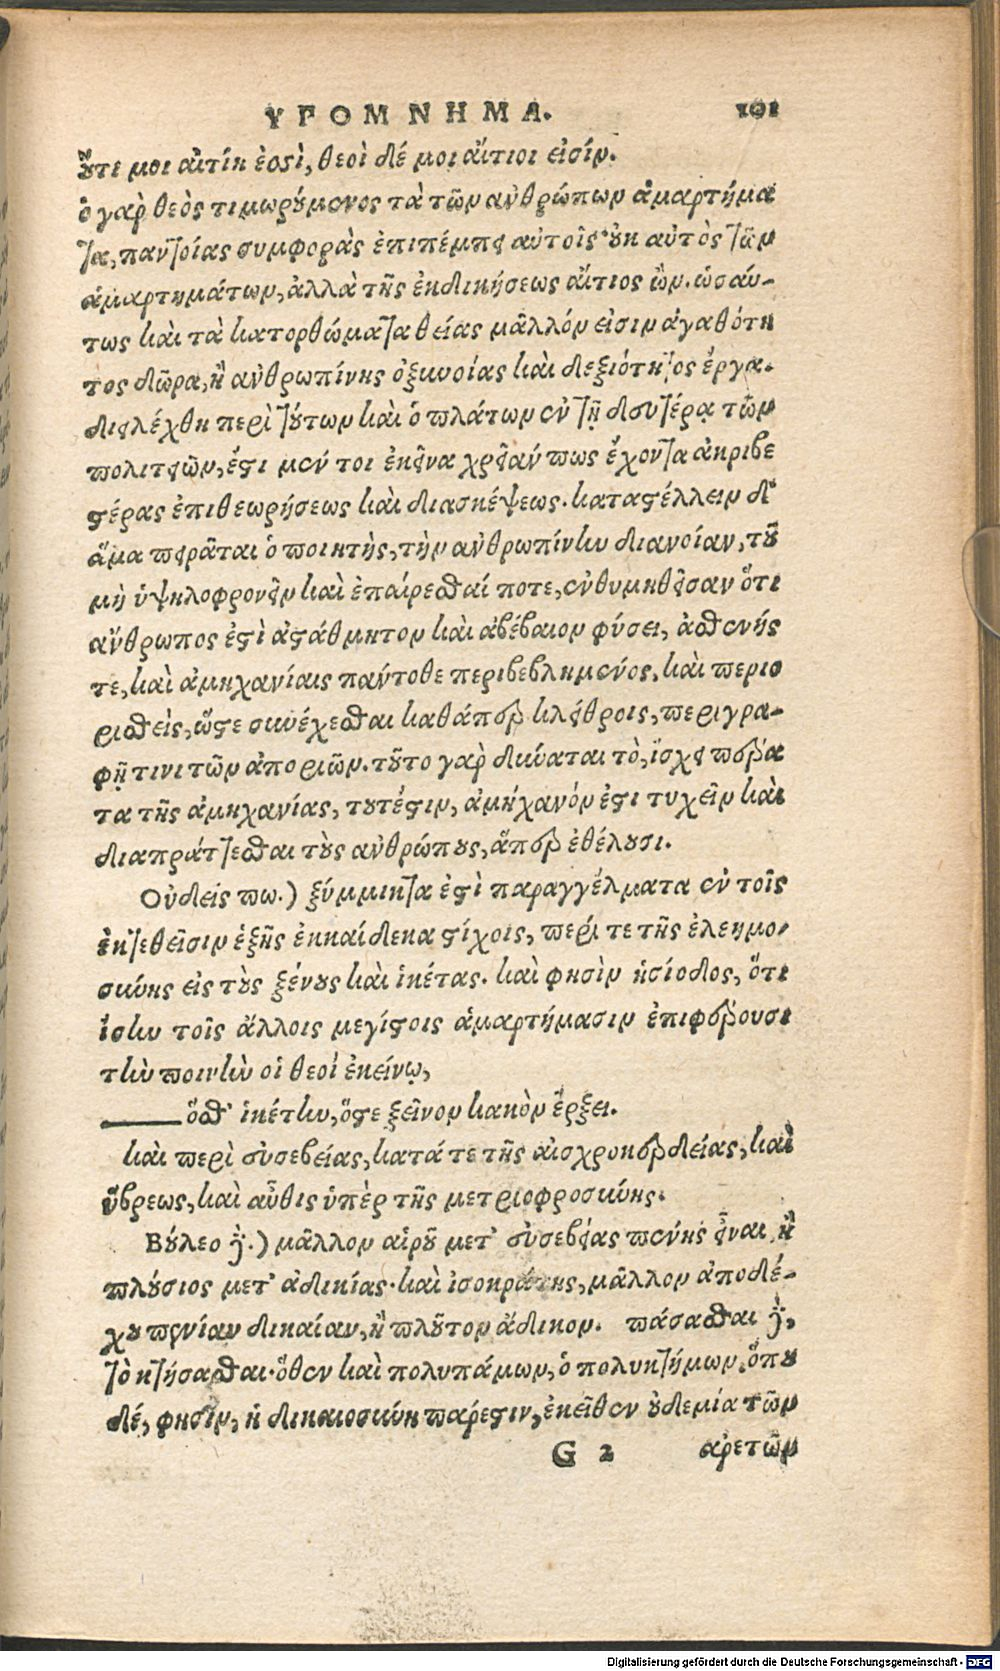 ΥΠΟΜΝΗΜΑ. 101
οὔτι μοι αἰτίη ἐσσὶ, θεοὶ δέ μοι αἴτιοι εἰσίν.
ὁ γὰρ θεὸς τιμωρούμενος τὰ τῶν ἀνθρώπων ἁμαρτήμα
τα, παντοίας συμφορὰς ἐπιπέμπει αὐτοῖς· οὐκ αὐτὸς τῶν
ἁμαρτημάτων, ἀλλὰ τῆς ἐκδικήσεως αἴτιος ὢν. ὡσαύ-
τως καὶ τὰ κατορθώματα θείας μᾶλλόν εἰσιν ἀγαθότη
τος δῶρα, ἢ ἀνθρωπίνης ὀξυνοίας καὶ δεξιότητος ἔργα.
διελέχθη περὶ τούτων καὶ ὁ πλάτων ἐν τῇ δευτέρᾳ τῶν
πολιτειῶν, ἔστι μέν τοι ἐκεῖνα χρείαν πως ἔχοντα ἀκριβε
στέρας ἐπιθεωρήσεως καὶ διασκέψεως. καταστέλλειν δ'
ἅμα πειρᾶται ὁ ποιητὴς, τὴν ἀνθρωπίνην διανοίαν, τοῦ
μὴ ὑψηλοφρονεῖν καὶ ἐπαίρεσθαί ποτε, ἐνθυμηθεῖσαν ὅτι
ἄνθρωπος ἐστὶ ἀστάθμητον καὶ ἀβέβαιον φύσει, ἀσθενής
τε, καὶ ἀμηχανίαις πάντοθε περιβεβλημένος, καὶ περιο
ρισθεὶς, ὥστε συνέχεσθαι καθάπερ κλείθροις, περιγρα-
φῇ τινι τῶν ἀποριῶν. τοῦτο γὰρ δύναται τὸ, ἴσχει πείρα
τα τῆς ἀμηχανίας, τουτέστιν, ἀμήχανόν ἐστι τυχεῖν καὶ
διαπράττεσθαι τοὺς ἀνθρώπους, ἅπερ ἐθέλουσι.
Οὐδείς πω.) ξύμμικτα ἐστὶ παραγγέλματα ἐν τοῖς
ἐκτεθεῖσιν ἑξῆς ἑκκαίδεκα στίχοις, περί τε τῆς ἐλεημο-
σύνης εἰς τοὺς ξένους καὶ ἱκέτας. καὶ φησὶν ἡσίοδος, ὅτι
ἴσην τοῖς ἄλλοις μεγίστοις ἁμαρτήμασιν ἐπιφέρουσι
τὴν ποινὴν οἱ θεοί ἐκείνῳ,
——— ὅσθ' ἱκέτην, ὅστε ξεῖνον κακὸν ἔρξει.
καὶ περὶ εὐσεβείας, κατά τε τῆς αἰσχροκερδείας, καὶ
ὕβρεως, καὶ αὖθις ὑπὲρ τῆς μετριοφροσύνης.
Βούλεο δ̀.) μᾶλλον αἱροῦ μετ' εὐσεβείας πένης εἶναι, ἢ
πλούσιος μετ' ἀδικίας. καὶ ἰσοκράτης, μᾶλλον ἀποδέ-
χου πενίαν δικαίαν, ἢ πλοῦτον ἄδικον. πάσασθαι δ̀,
τὸ κτήσασθαι. ὅθεν καὶ πολυπάμων, ὁ πολυκτήμων. ὅπου
δέ, φησὶν, ἡ δικαιοσύνη πάρεστιν, ἐκεῖθεν οὐδεμία τῶν
G 2 ἀρετῶν
Digitalisierung gefördert durch die Deutsche Forschungsgemeinschaft - DFG